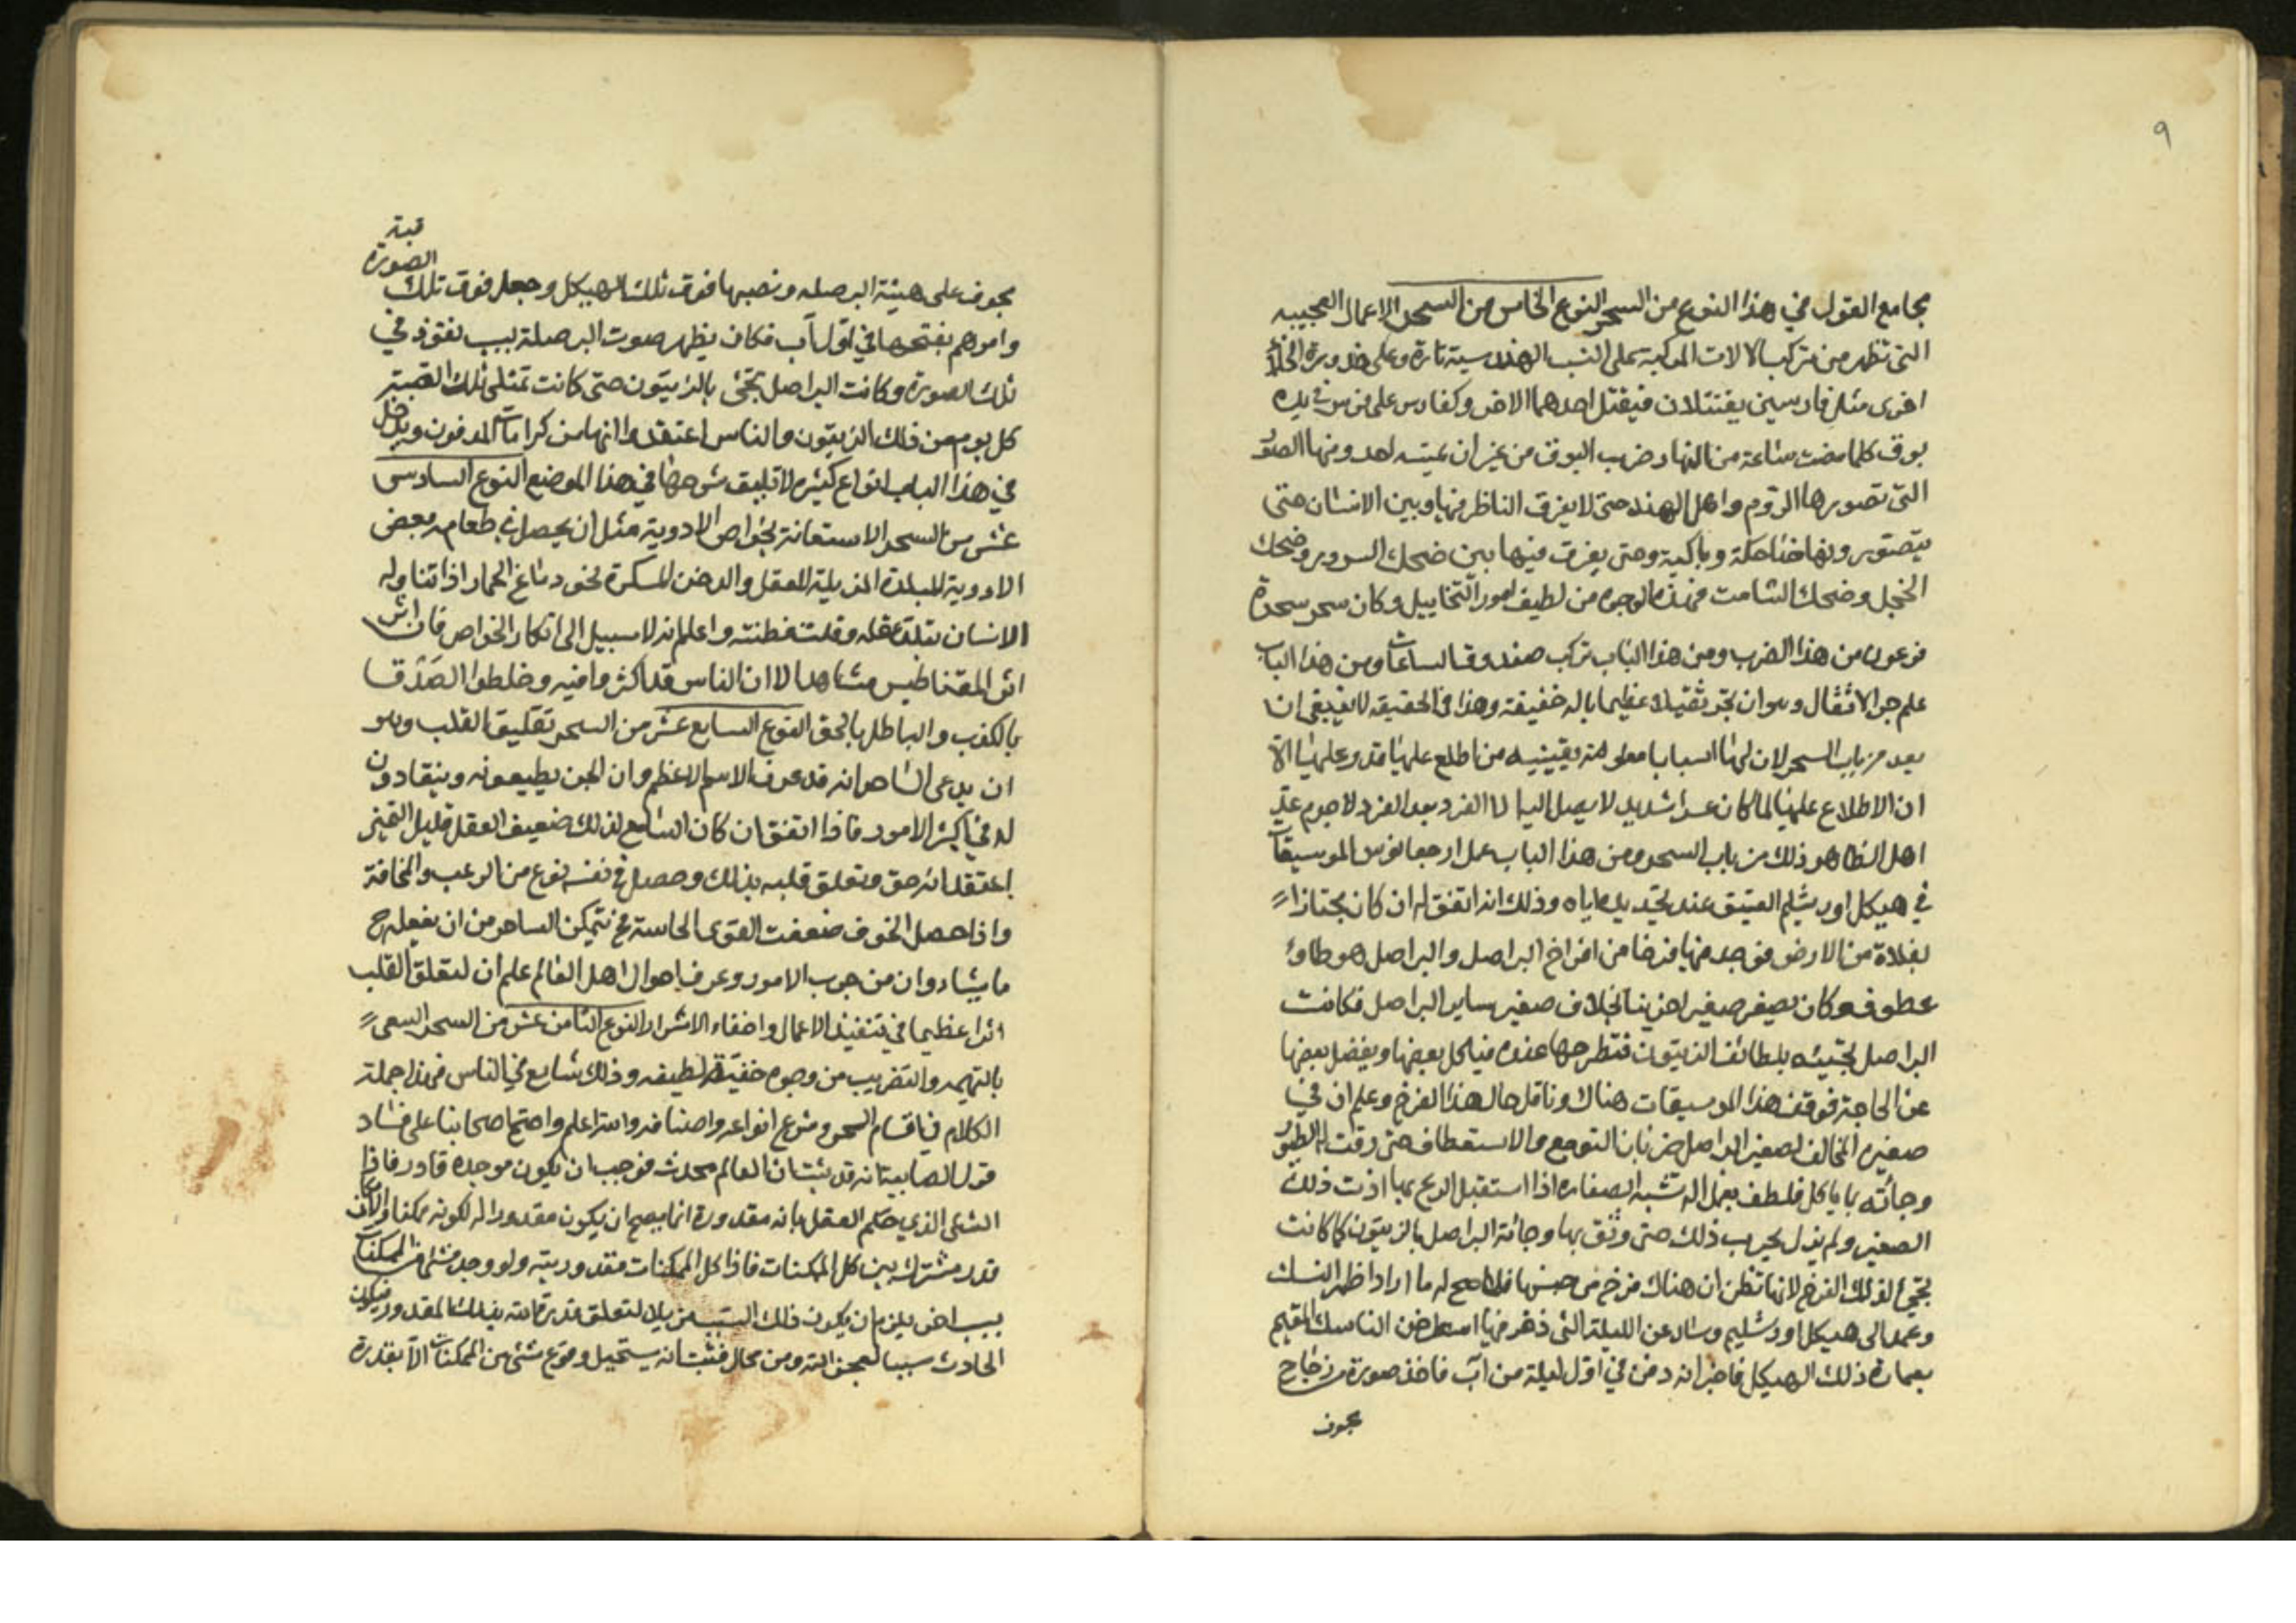 ٩
مجامع القول في هذا النوع من السحر النوع الخامس من السحر الاعمال العجيبه
التي تظهر من تركيب الالات المركبة على النسب الهندسية تارة وعلى ضرورة الخلأ
اخرى مثل فارسين يقتتلان فيقتل احدهما الاخر وكفارس على فرس في يده
بوق كلما مضت ساعة من النهار ضرب البوق من غير ان يمسه احد ومنها الصور
التي تصورها الروم واهل الهند حتى لا يفرق الناظر فيها وبين الانسان حتى
يتصور ونها ضاحكة وباكية وحتى يفرق فيها بين ضحك السرور وضحك
الخجل وضحك الشامت فهذه الوجوه من لطيف امور التخاييل وكان سحر سحرة
فرعون من هذا الضرب ومن هذا الباب تركيب صندوق الساعات ومن هذا الباب
علم جر الاثقال وهو ان يجر ثقيلا عظيما باله خفيفة وهذا في الحقيقه لا ينبغي ان
يعد من باب السحر لان لها اسبابا معلومة يقينيه من اطلع عليها قدر عليها الا
ان الاطلاع عليها لما كان عسرا شديدا لا يصل اليه الا الفرد بعد الفرد لا جرم عد
اهل الظاهر ذلك من باب السحر ومن هذا الباب عمل ارجعانوس الموسيقات
في هيكل اورشليم العتيق عند تجديده اياه وذلك انه اتفق له ان كان مجتازا
بفلاة من الارض فوجد فيها فرخا من افراخ البراصل والبراصل هو طائر
عطوف وكان يصفر صفيرا حزينا بخلاف صفير ساير البراصل فكانت
البراصل تجيئه بلطائف الزيتون فتطرحها عنده فياكل بعضها ويفضل بعضها
عن الحاجة فوقف هذا الموسيقات هناك وتامل حال هذا الفرخ وعلم ان في
صفيره المخالف لصفير البراصل ضربا من التوجع والاستعطاف حتى رقت له الطيور
وجائته بما ياكل فلطف بعمل الة تشبه الصفاره اذا استقبل الريح بها اذت ذلك
الصفير ولم يزل يجرب ذلك حتى وثق بها وجائته البراصل بالزيتون كما كانت
تجيئ لذلك الفرخ لانها تظن ان هناك فرخ من جنسها فلما صح له ما اراد اظهر النسك
وعمد الى هيكل اورشليم وسال عن الليلة التي دفن فيها اسطرخن الناسك القيم
بعمارة ذلك الهيكل فاخبر انه دفن في اول ليلة من آب فاخذ صورة من زجاج
مجوف
قبة
الصورة
مجوف على هيئة البرصله ونصبها فوق ذلك الهيكل وجعل فوق تلك
وامرهم بفتحها في اول آب فكان يظهر صوت البرصلة بسبب نفوذ في
تلك الصورة وكانت البراصل تجئ بالزيتون حتى كانت تمتلى تلك القبة
كل يوم من ذلك الزيتون والناس اعتقدوا انها من كرامات المدفون ويدخل
في هذا الباب انواع كثيره لا تليق شرحها في هذا الموضع النوع السادس
عشر من السحر الاستعانة بخواص الادوية مثل ان يحصل في طعامه بعض
الادوية المبلدة المزيلة للعقل والدخن المسكرة نحو دماغ الحمار اذا تناوله
الانسان تبلد عقله وقلت فطنته واعلم انه لا سبيل الى انكار الخواص فان اثر
اثر المقناطيس مشاهد الا ان الناس قد اكثروا فيه وخلطوا الصدق
بالكذب والباطل بالحق النوع السابع عشر من السحر تعليق القلب وهو
ان يدعى الساحر انه قد عرف الاسم الاعظم وان الجن يطيعونه وينقادون
له في اكثر الامور فاذا اتفق ان كان السامع لذلك ضعيف العقل قليل التميز
اعتقد انه حق وتعلق قلبه بذلك وحصل في نفسه نوع من الرعب والمخافة
واذا حصل الخوف ضعفت القوى الحاسة فح يتمكن الساحر من ان يفعله ح
ما يشاء وان من جرب الامور وعرف احوال اهل العالم علم ان لتعلق القلب
اثرا عظيما في تنفيذ الاعمال واخفاء الاسرار النوع الثامن عشر من السحر السعي
بالنميمه والتضريب من وجوه خفية لطيفه وذلك شايع في الناس فهذا جملة
الكلام في اقسام السحر وشرح انواعه واصنافه والله اعلم واحتج اصحابنا على فساد
قول الصابية انه قد ثبت ان العالم محدث فوجب ان يكون موجده قادر فاذا
الشئ الذي حكم العقل بانه مقدورة انما يصح ان يكون مقدورا له لكونه ممكنا والامكان
قدر مشترك بين كل الممكنات فاذا كل الممكنات مقدوريته ولو وجد شئ من الممكنات
بسبب اخر يلزم ان يكون ذلك السبب مزيلا لتعلق قدرة الله بذلك المقدور فيكون
الحادث سببا لعجز الله ومن محال فثبت انه يستحيل وقوع شئ من الممكنات الا بقدرة